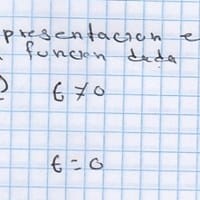 presentacion e
funcion dada
)
t ≠ 0
t = 0